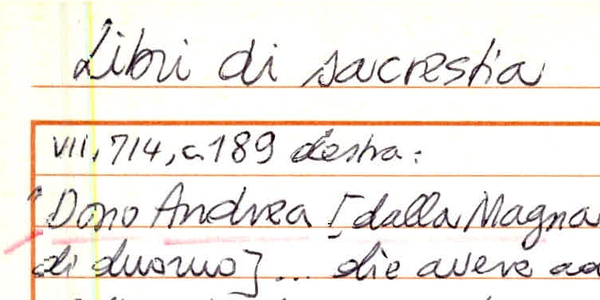 Libri di sacrestia
VII, 714, c. 189 destra:
"Dono Andrea [dalla Magna
di duomo] ... die avere